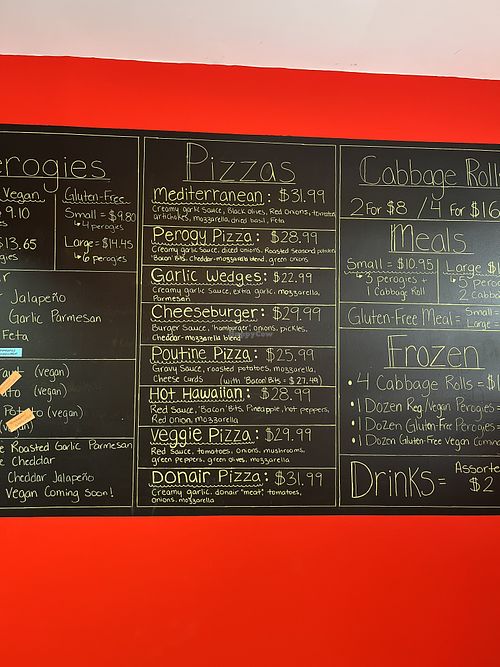 erogies
Vegan
9.10
$13.65
Gluten-Free
Small = $9.80
↳ 4 perogies
Large = $14.45
↳ 6 perogies
Jalapeño
Garlic Parmesan
Feta
(vegan)
(vegan)
(vegan)
Roasted Garlic Parmesan
Cheddar
Cheddar Jalapeño
Vegan Coming Soon!
Pizzas
Mediterranean: $31.99
Creamy garlic sauce, Black olives, Red Onions, tomatoes
artichokes, mozzarella, dried basil, Feta
Perogy Pizza: $28.99
Creamy garlic sauce, diced onions, Roasted Seasoned potatoes
'Bacon' Bits, Cheddar-mozzarella blend, green onions
Garlic Wedges: $22.99
Creamy garlic sauce, extra garlic, mozzarella,
Parmesan
Cheeseburger: $29.99
Burger Sauce, 'hamburger', onions, pickles,
Cheddar-mozzarella blend
Poutine Pizza: $25.99
Gravy Sauce, roasted potatoes, mozzarella,
Cheese Curds (with 'Bacon' Bits = $27.49)
Hot Hawaiian: $28.99
Red Sauce, 'Bacon' Bits, Pineapple, hot peppers,
Red onion, mozzarella
Veggie Pizza: $29.99
Red Sauce, tomatoes, onions, mushrooms,
green peppers, green olives, mozzarella
Donair Pizza: $31.99
Creamy garlic, donair "meat", tomatoes,
onions, mozzarella
Cabbage Rolls
2 For $8 / 4 For $16
Meals
Small = $10.95
↳ 3 perogies +
1 Cabbage Roll
Large $1
↳ 5 pero
2 Cabba
Gluten-Free Meal = Small =
Large =
Frozen
• 4 Cabbage Rolls = $1
• 1 Dozen Reg/Vegan Perogies =
• 1 Dozen Gluten-Free Perogies =
• 1 Dozen Gluten-Free Vegan Comin
Drinks = Assorte
$2